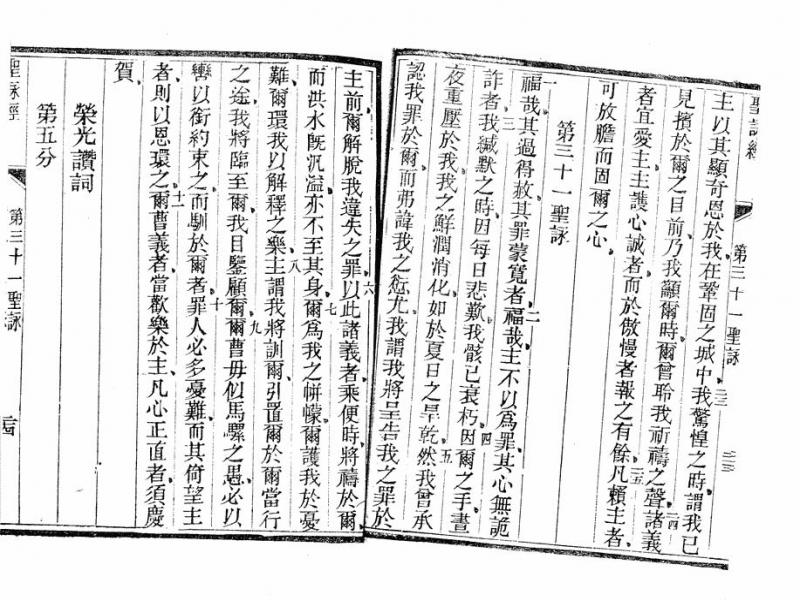 聖詠經
第三十一聖詠
主以其顯奇恩於我在鞏固之城中我驚惶之時謂我已
二三
見擯於爾之目前乃我籲爾時爾曾聆我祈禱之聲諸義
二四
者宜愛主主護心誠者而於傲慢者報之有餘凡賴主者
二五
可放膽而固爾之心
第三十一聖詠
一
福哉其過得赦其罪蒙寬者二福哉主不以為罪其心無詭
三
詐者我緘默之時因每日悲歎我骸已衰朽四因爾之手晝
夜重壓於我我之鮮潤消化如於夏日之旱乾五然我曾承
認我罪於爾而弗諱我之愆尤我謂我將呈告我之罪於
主前爾解脫我違失之罪六以此諸義者乘便時將禱於爾
而洪水旣汎溢亦不至其身七爾為我之帡幪爾護我於憂
難爾環我以解釋之樂八主謂我將訓爾引置爾於爾當行
之途我將臨至爾我目鑒顧爾九爾曹毋似馬騾之愚必以
轡以銜約束之而馴於爾者十罪人必多憂難而其倚望主
者則以恩環之十一爾曹義者當歡樂於主凡心正直者須慶
賀
榮光讚詞
第五分
聖詠經
第三十一聖詠